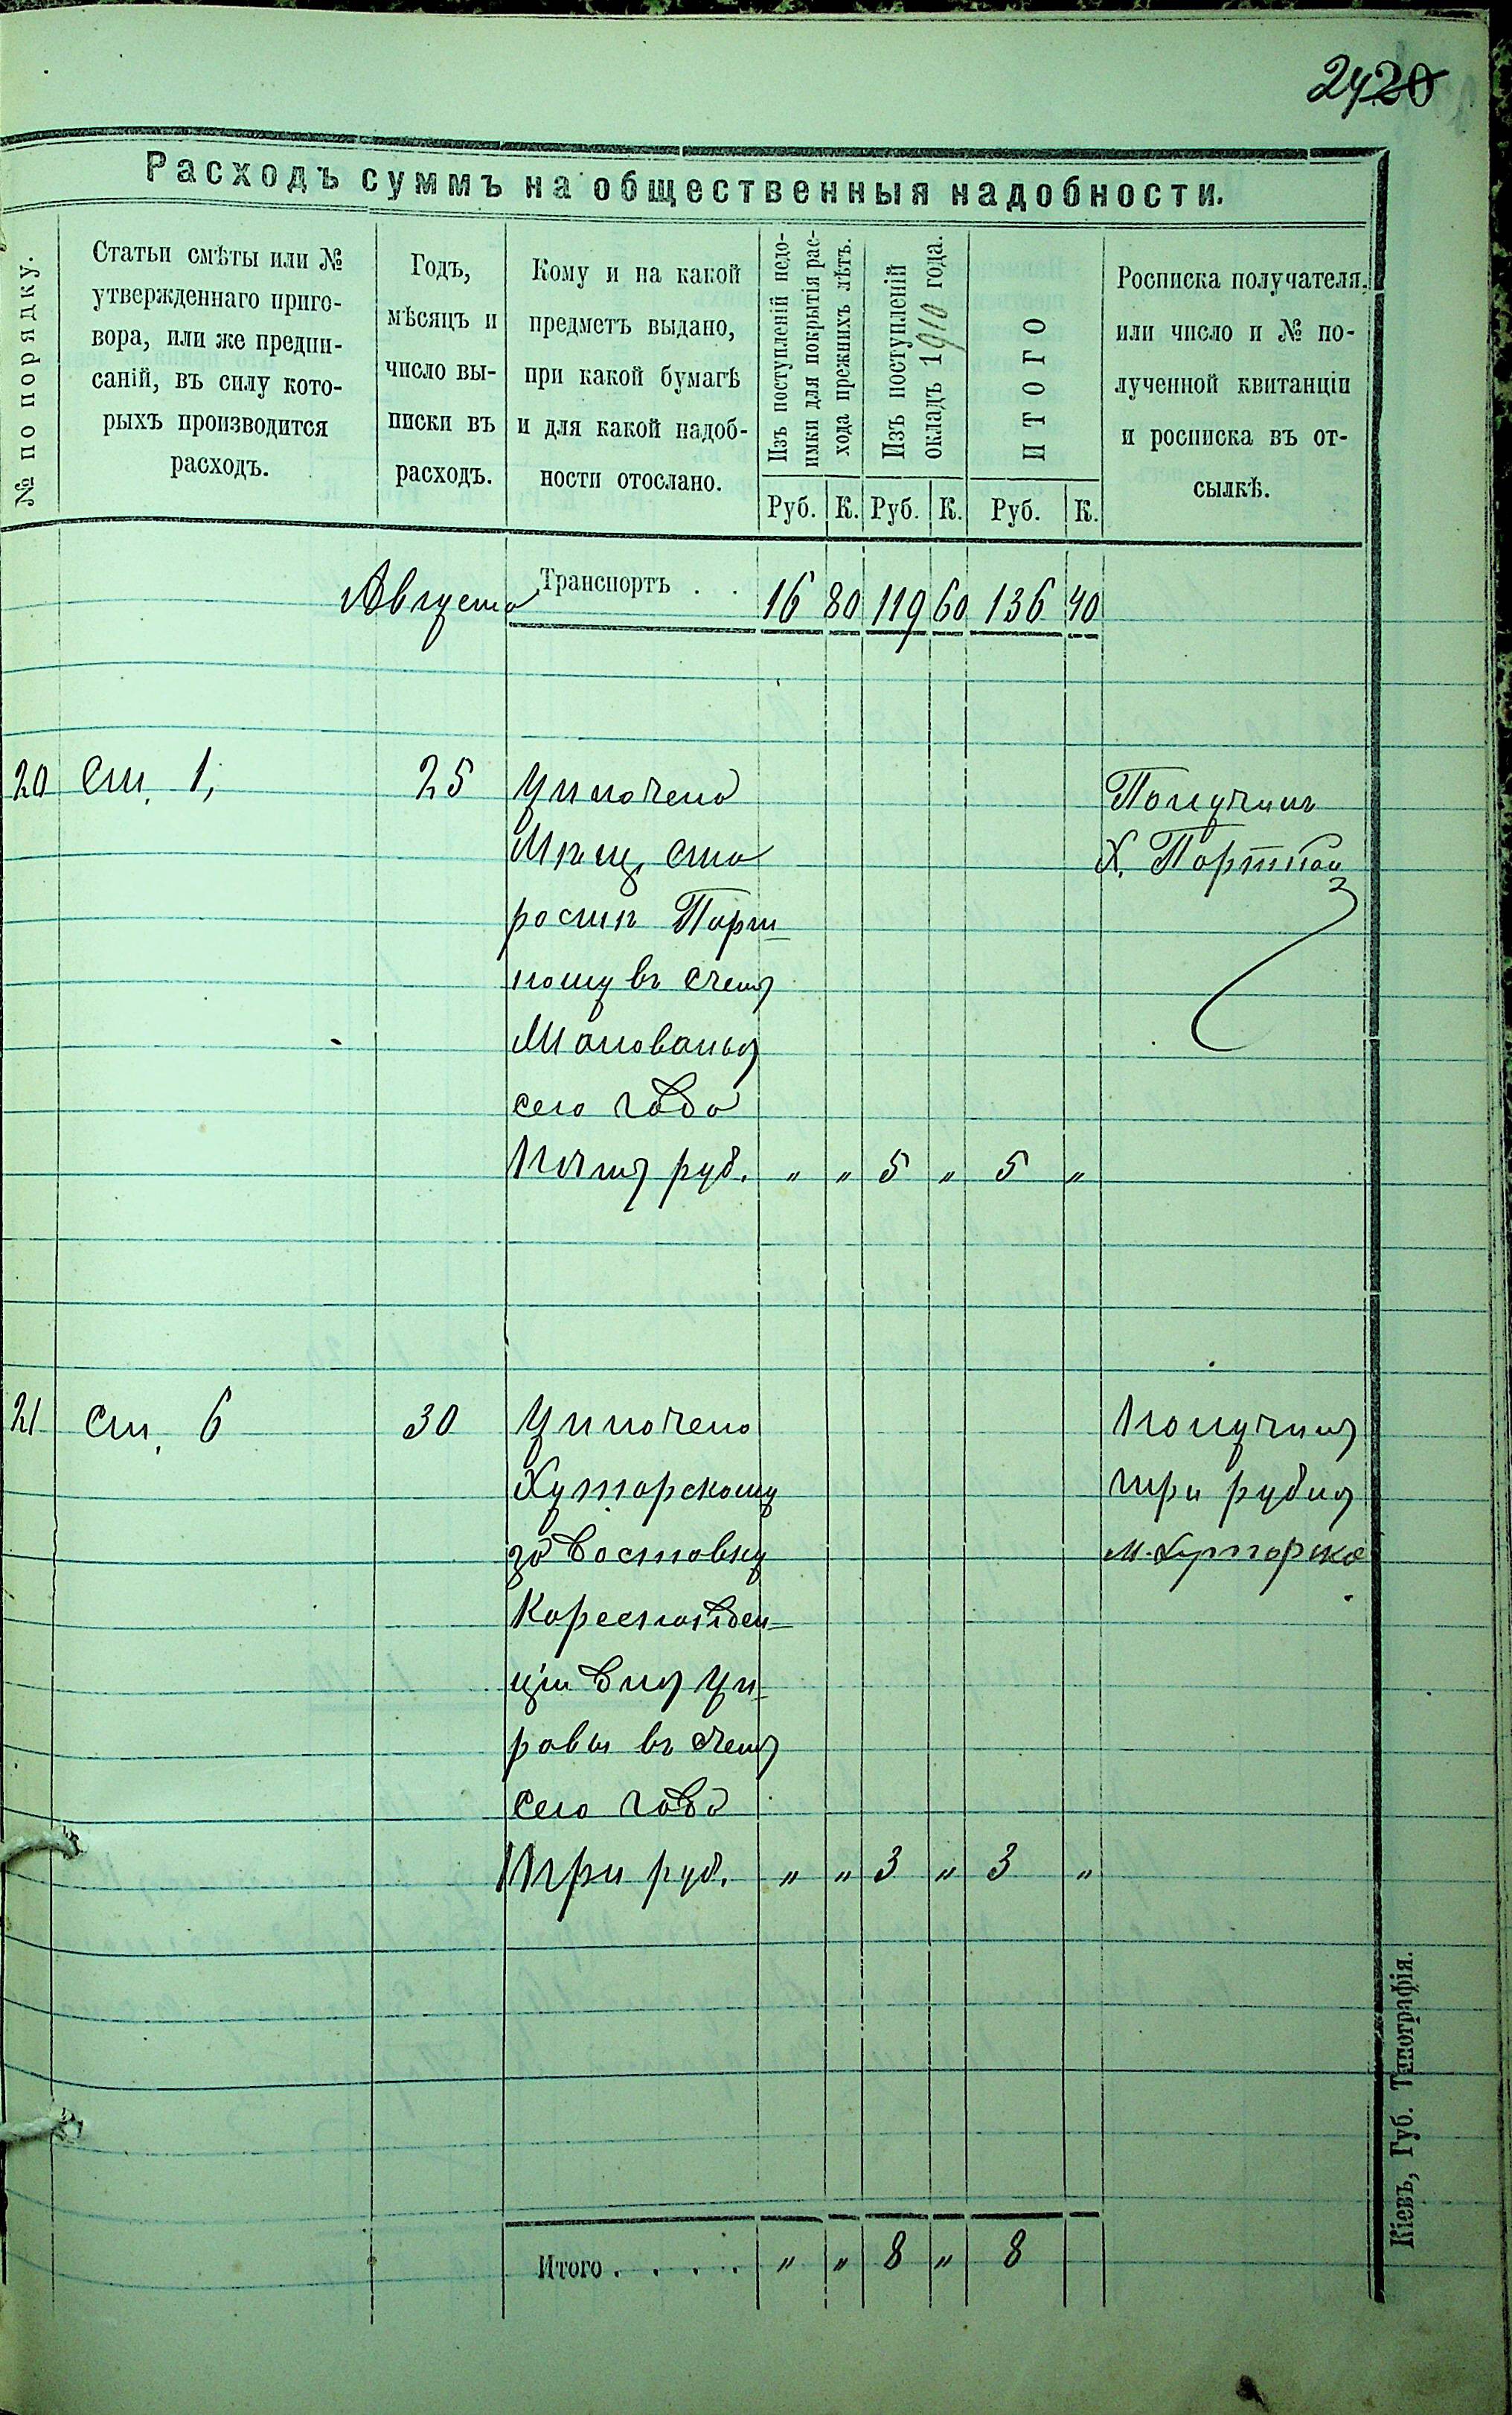 24 20
Расходъ суммъ на общественныя надобности.
№ по порядку.
Статьи смѣты или №
утвержденнаго приго-
вора, или же предпи-
саній, въ силу кото-
рыхъ производится
расходъ.
Годъ,
мѣсяцъ и
число вы-
писки въ
расходъ.
Кому и на какой
предметъ выдано,
при какой бумагѣ
и для какой надоб-
ности отослано.
Изъ поступленій недо-
имки для покрытія рас-
хода прежнихъ лѣтъ.
Изъ поступленій
окладъ 1910 года.
ИТОГО
Росписка получателя,
или число и № по-
лученной квитанціи
и росписка въ от-
сылкѣ.
Руб. К. Руб. К. Руб. К.
Августа Транспортъ . . 16 80 119 60 136 40
20 ст. 1, 25 Уплочено Получилъ
Мѣщ. ста Х. Портной
ростѣ Порт-
ному въ счетъ
жалованья
сего года
Пять руб. " " 5 " 5 "
21 ст. 6 30 Уплочено Получилъ
Хуторскому три рубля
за доставку М. Хуторск
Кореспонден-
ціи для Уп-
равы въ счетъ
сего года
Три руб. " " 3 " 3 "
Итого . . . . " " 8 " 8
Кіевъ, Губ. Типографія.